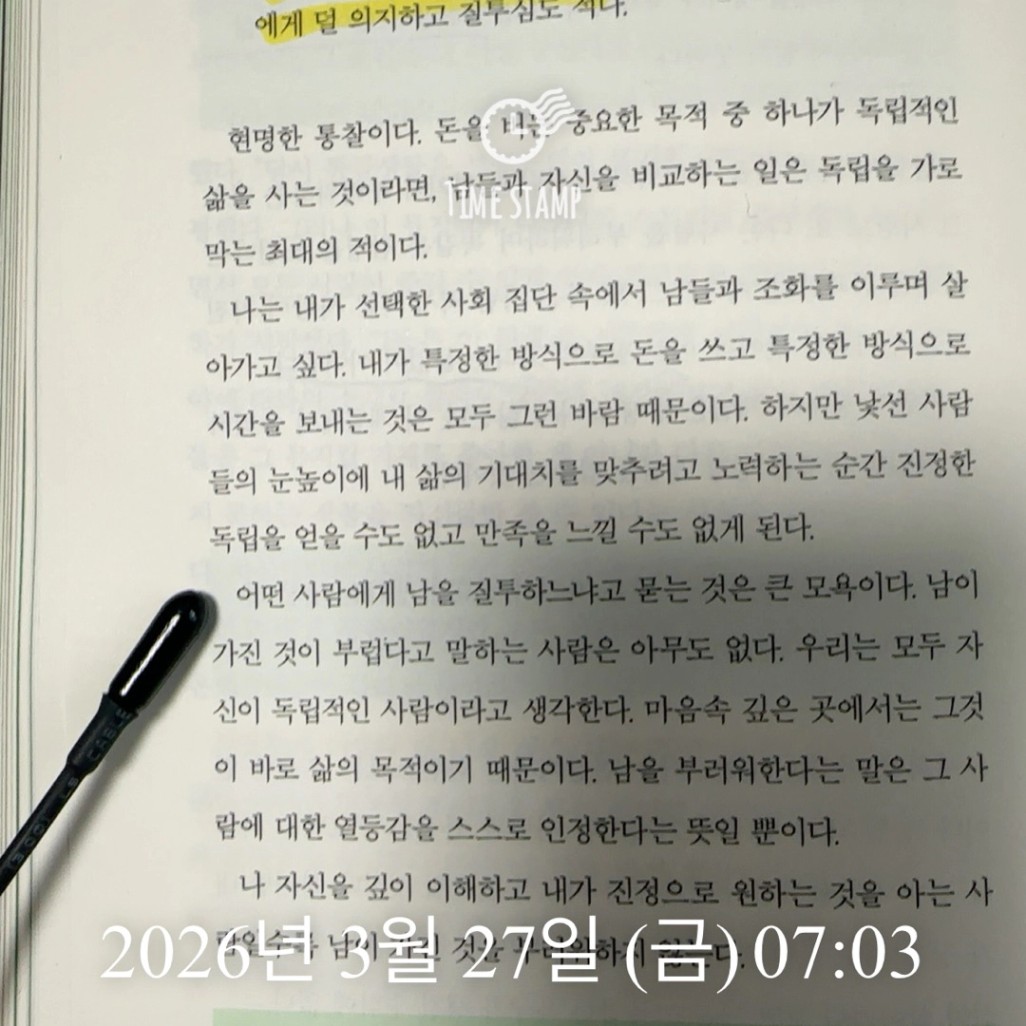 에게 덜 의지하고 질투심도 적다.
현명한 통찰이다. 돈을 중요한 목적 중 하나가 독립적인
삶을 사는 것이라면, 남들과 자신을 비교하는 일은 독립을 가로
TIME STAMP
막는 최대의 적이다.
나는 내가 선택한 사회 집단 속에서 남들과 조화를 이루며 살
아가고 싶다. 내가 특정한 방식으로 돈을 쓰고 특정한 방식으로
시간을 보내는 것은 모두 그런 바람 때문이다. 하지만 낯선 사람
들의 눈높이에 내 삶의 기대치를 맞추려고 노력하는 순간 진정한
독립을 얻을 수도 없고 만족을 느낄 수도 없게 된다.
어떤 사람에게 남을 질투하느냐고 묻는 것은 큰 모욕이다. 남이
가진 것이 부럽다고 말하는 사람은 아무도 없다. 우리는 모두 자
신이 독립적인 사람이라고 생각한다. 마음속 깊은 곳에서는 그것
이 바로 삶의 목적이기 때문이다. 남을 부러워한다는 말은 그 사
람에 대한 열등감을 스스로 인정한다는 뜻일 뿐이다.
나 자신을 깊이 이해하고 내가 진정으로 원하는 것을 아는 사
람일수록 남이 가진 것을 부러워하지 않는다.
2026년 3월 27일 (금) 07:03